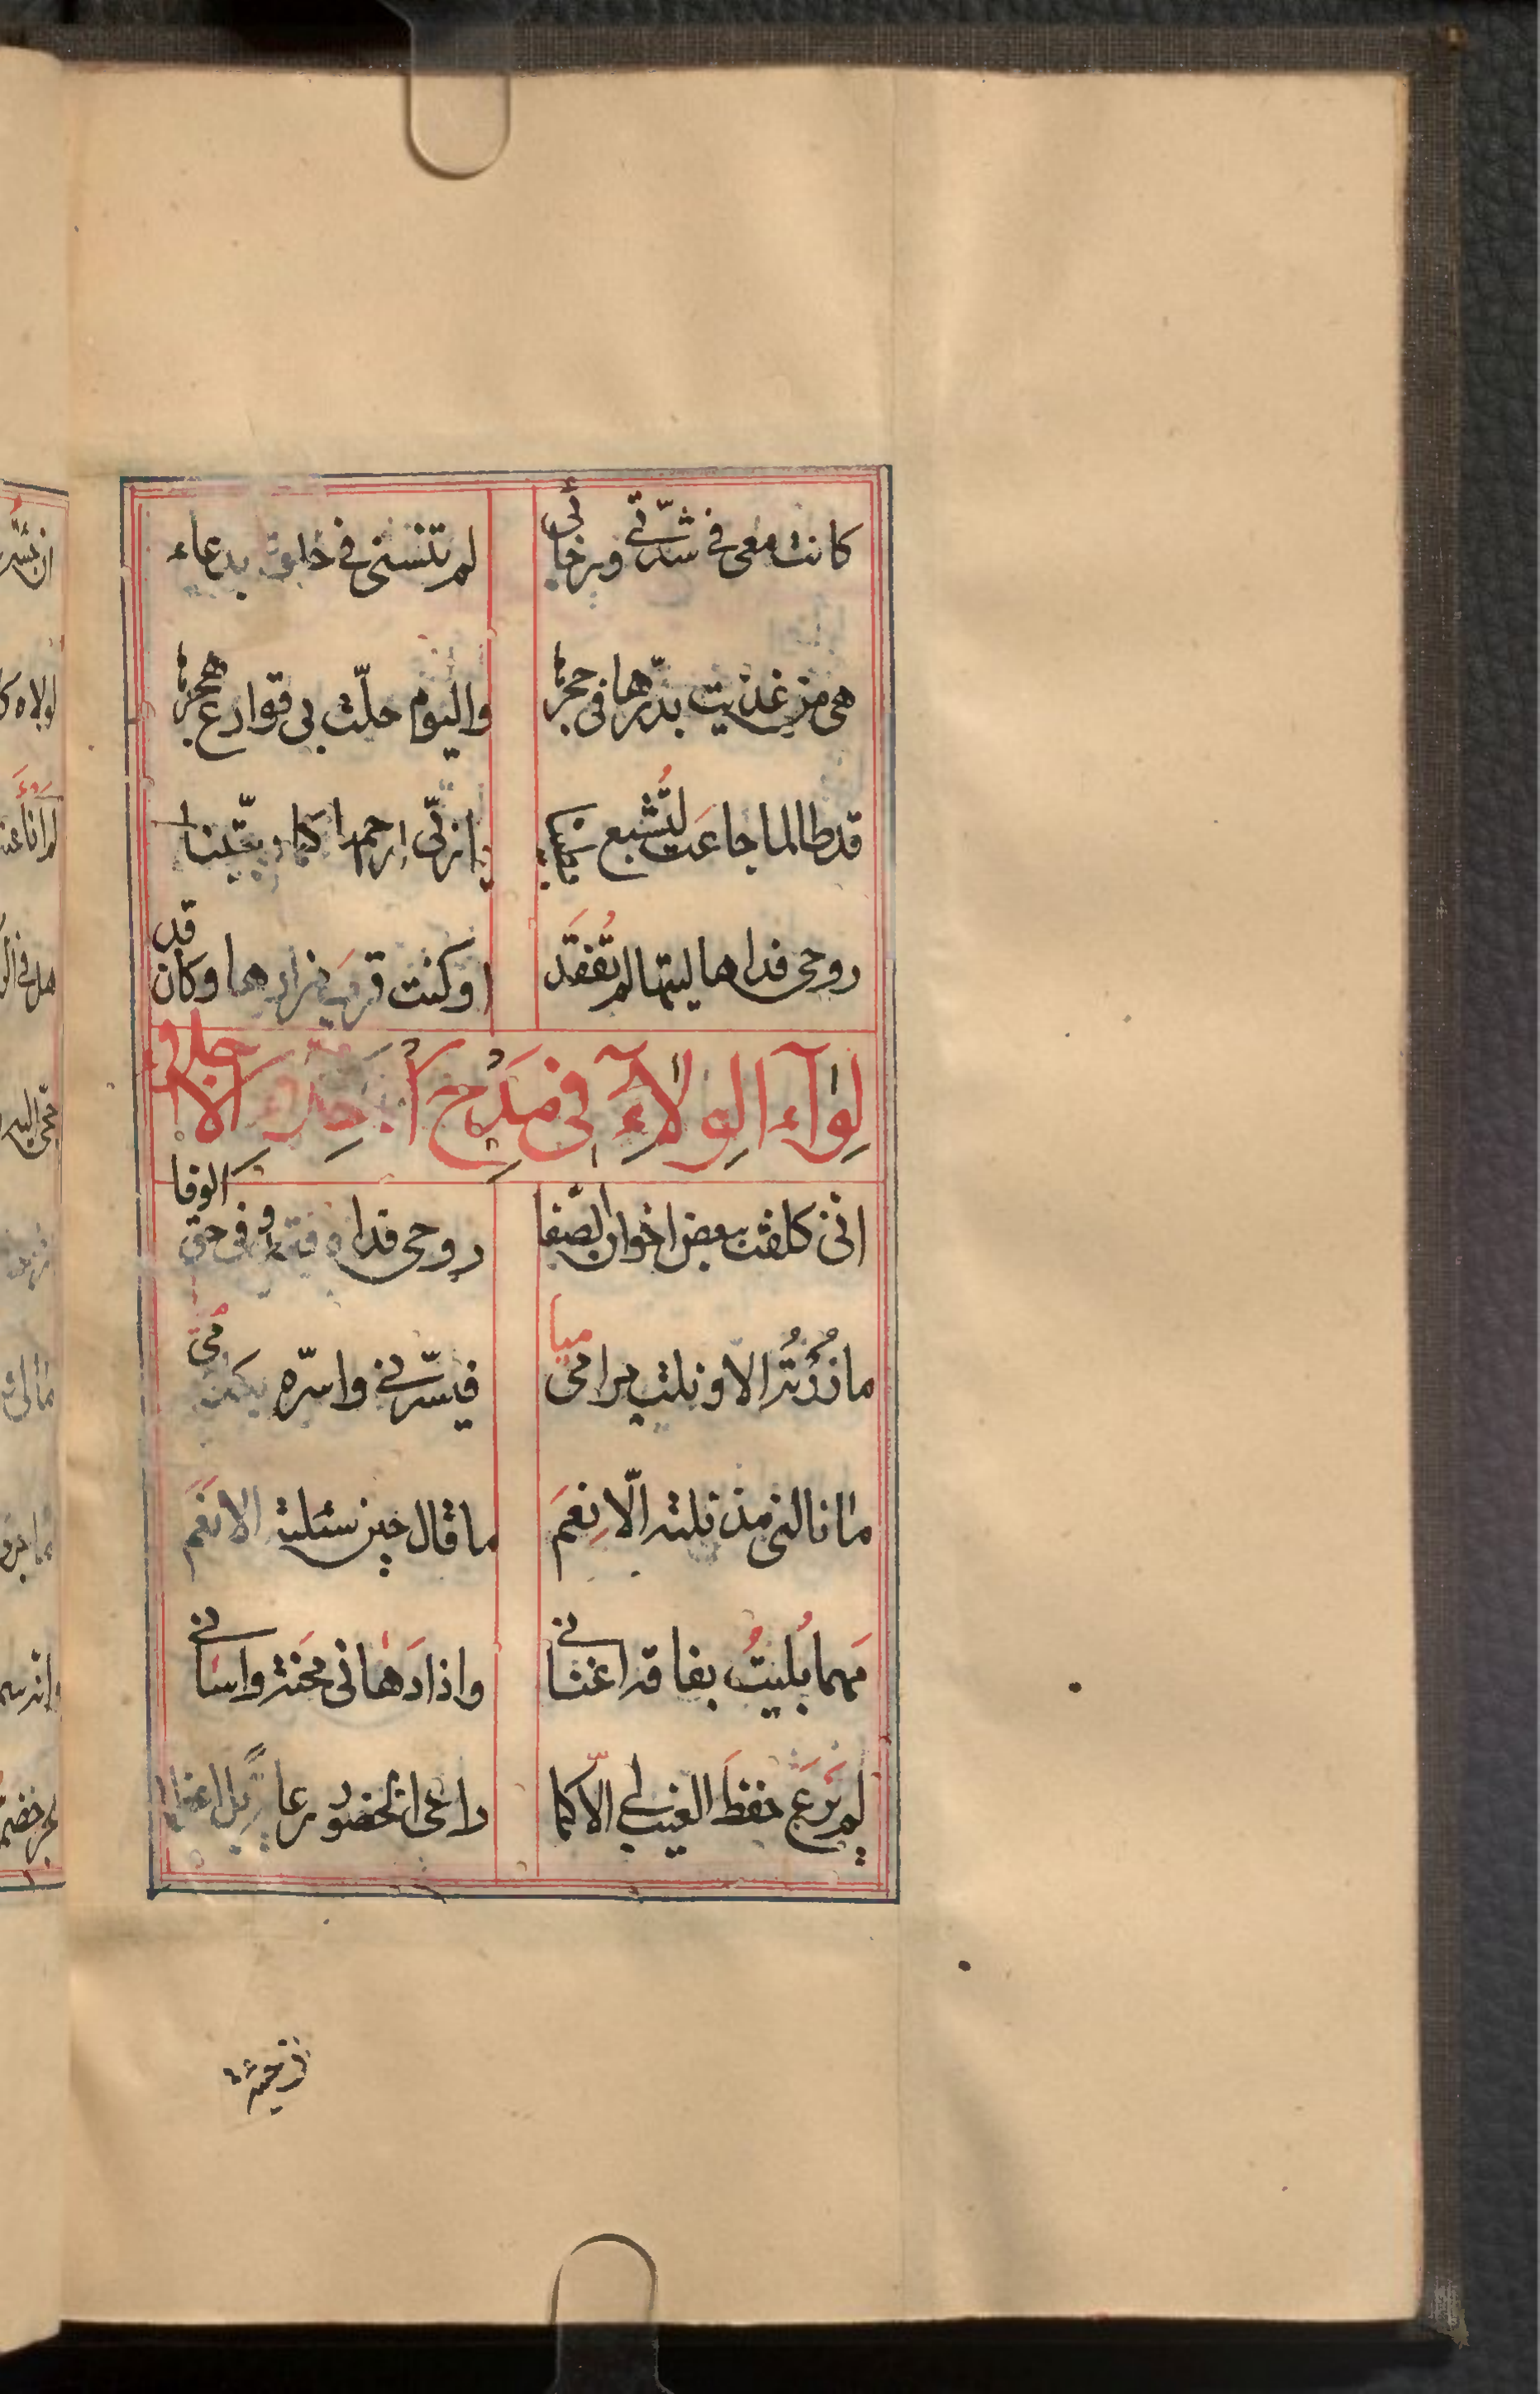 كانت معي في شدّتي ورخائي لم تنسني في خلوة بدعاء
هي من غذيت بدّرها في حجرها واليوم حلّت بي قوارع هجرها
قد طالما جاعَت لتُشبع يارّبي ارحمها كما ربّيتنا
روحي فداها ليتها لم تُفقَد او كنت قرب مزارها وكان قد
لِوآء الوِلآء في مَدح احد الاجلاء
انّي كلفت ببعض اخوان الصّفا روحي فداه في حق الوفا
ما زُرْتُه الا و نلت مرامي فيسّرني واسرّه
ما نالني مذ نلته الّا نِعَم ما قال حين سئلته الا نَعَم
مهما بُليتُ بفاقة اغناني واذا دَهاني محنة واساني
لم يَرعَ حفظَ الغيب لي الّا كما راعى الحضور بل